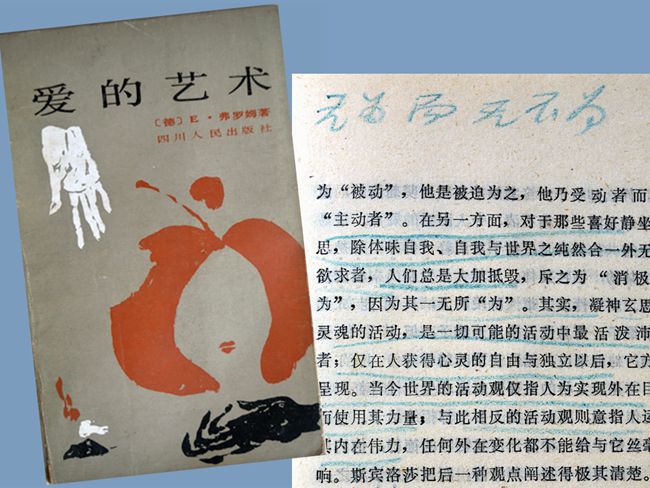 爱的艺术
〔德〕E·弗罗姆著
四川人民出版社
无为而无不为
为“被动”，他是被迫为之，他乃受动者而
“主动者”。在另一方面，对于那些喜好静坐
思，除体味自我、自我与世界之纯然合一外无
欲求者，人们总是大加抵毁，斥之为“消极
为”，因为其一无所“为”。其实，凝神玄思
灵魂的活动，是一切可能的活动中最活泼沛
者；仅在人获得心灵的自由与独立以后，它方
呈现。当今世界的活动观仅指人为实现外在目
而使用其力量；与此相反的活动观则意指人运
其内在伟力，任何外在变化都不能给与它丝毫
响。斯宾洛莎把后一种观点阐述得极其清楚。